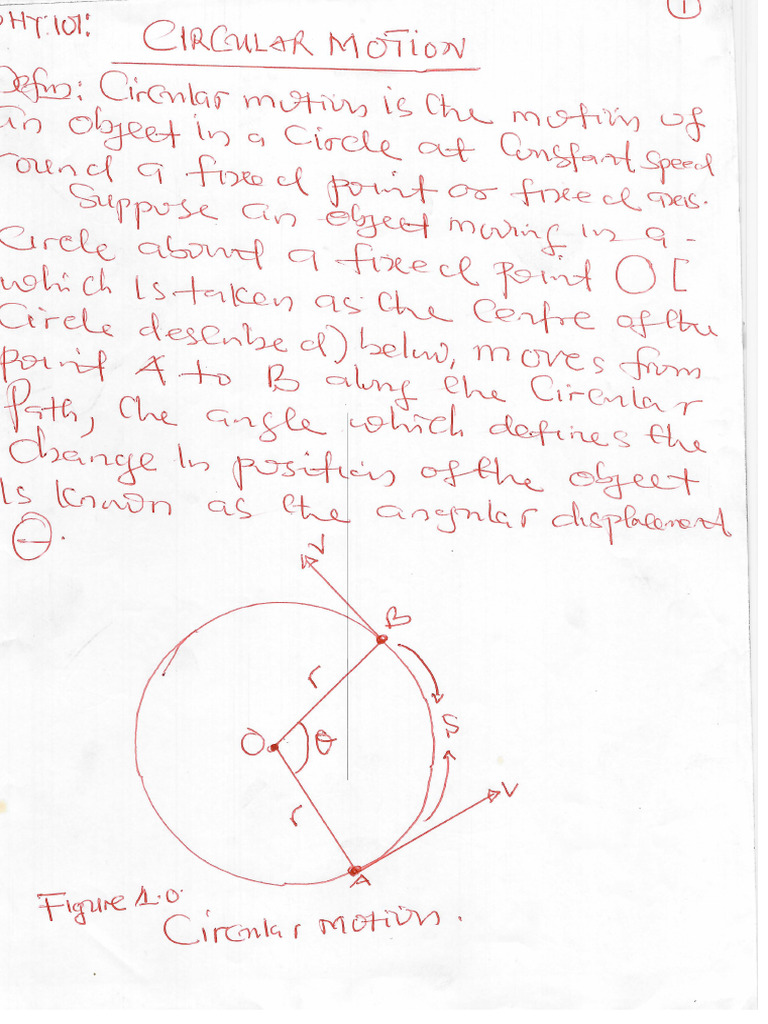 1
PHY.101:
CIRCULAR MOTION
Defn: Circular motion is the motion of
an object in a circle at constant speed
round a fixed point or fixed axis.
Suppose an object moving in a
circle about a fixed point O [
which is taken as the centre of the
circle described) below, moves from
point A to B along the circular
path, the angle which defines the
change in position of the object
is known as the angular displacement
θ.
V
B
r
S
O
θ
V
r
A
Figure 1.0.
Circular motion.